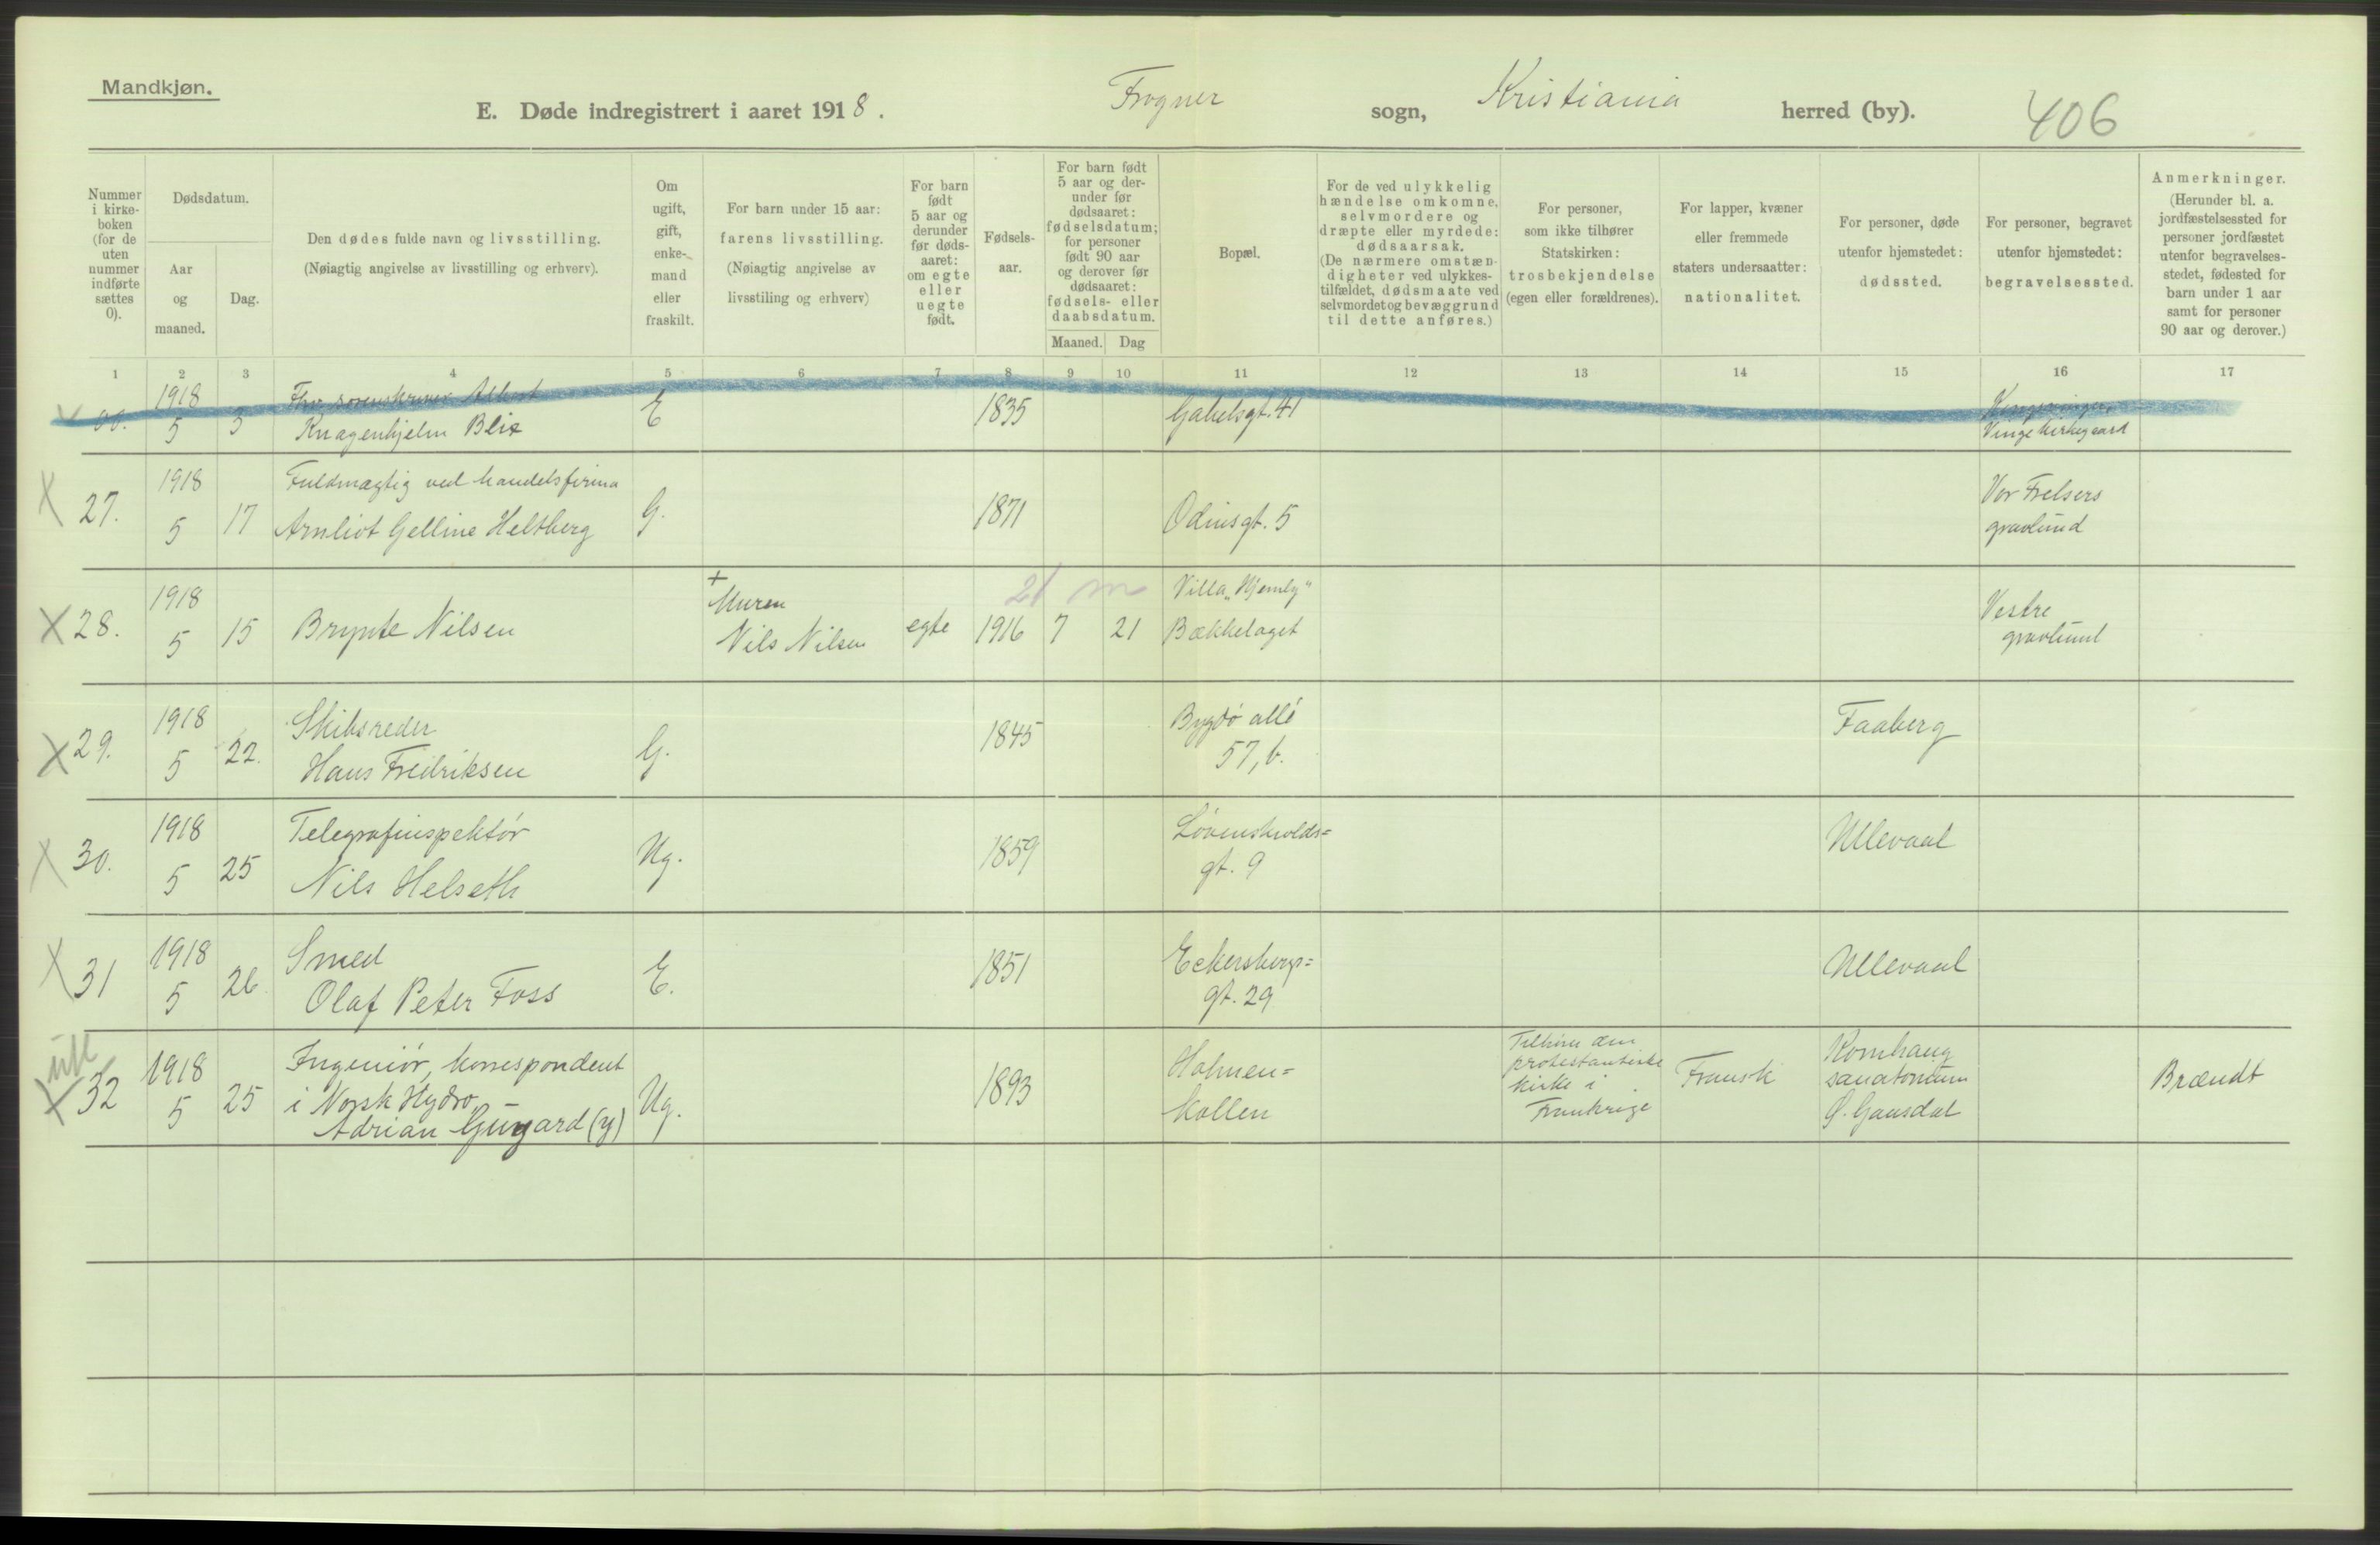 Mandkjøn.
E. Døde indregistrert i aaret 1918. Frogner sogn, Kristiania herred (by). 406
Nummer i kirke-boken (for de uten nummer indførte sættes 0).
Dødsdatum.
Aar og maaned.
Dag.
Den dødes fulde navn og livsstilling.
(Nøiagtig angivelse av livsstilling og erhverv).
Om ugift, gift, enke-mand eller fraskilt.
For barn under 15 aar: farens livsstilling.
(Nøiagtig angivelse av livsstiling og erhverv)
For barn født 5 aar og derunder før døds-aaret: om egte eller uegte født.
Fødsels-aar.
For barn født 5 aar og der-under før dødsaaret: fødselsdatum; for personer født 90 aar og derover før dødsaaret: fødsels- eller daabsdatum.
Maaned. Dag
Bopæl.
For de ved ulykkelig hændelse omkomne, selvmordere og dræpte eller myrdede: dødsaarsak.
(De nærmere omstæn-digheter ved ulykkes-tilfældet, dødsmaate ved selvmordet og bevæggrund til dette anføres.)
For personer, som ikke tilhører Statskirken: trosbekjendelse (egen eller forældrenes).
For lapper, kvæner eller fremmede staters undersaatter: nationalitet.
For personer, døde utenfor hjemstedet: dødssted.
For personer, begravet utenfor hjemstedet: begravelsessted.
Anmerkninger.
(Herunder bl. a. jordfæstelsessted for personer jordfæstet utenfor begravelses-stedet, fødested for barn under 1 aar samt for personer 90 aar og derover.)
1 2 3 4 5 6 7 8 9 10 11 12 13 14 15 16 17
1918 Fhv. sorenskriver Albert
5 3 Knagenhjelm Blix E 1835 Gabelsgt. 41 Vinge kirkegaard
X 27. 1918 Fuldmægtig ved handelsfirma Vor Frelsers
5 17 Arnliot Gelline Heltberg G. 1871 Odinsgt. 5 gravlund
X 28. 1918 + Murer 21 m Villa "Hjemly" Vestre
5 15 Brynte Nilsen Nils Nilsen egte 1916 7 21 Bækkelaget gravlund
X 29. 1918 Skibsreder Bygdø allé
5 22. Hans Fredriksen G. 1845 57, b. Faaberg
X 30. 1918 Telegrafinspektør Løvenskiolds=
5 25 Nils Helseth Ug. 1859 gt. 9 Ullevaal
X 31 1918 Smed Eckersbergs=
5 26 Olaf Peter Foss E. 1851 gt. 29 Ullevaal
utl
X 32 1918 Ingeniør, korrespondent Holmen= Tilhører den Kornhaug
5 25 i Norsk Hydro, Ug. 1893 kollen protestantiske Fransk sanatorium Brændt
Adrian (y) kirke i Ø. Gausdal
Frankrige